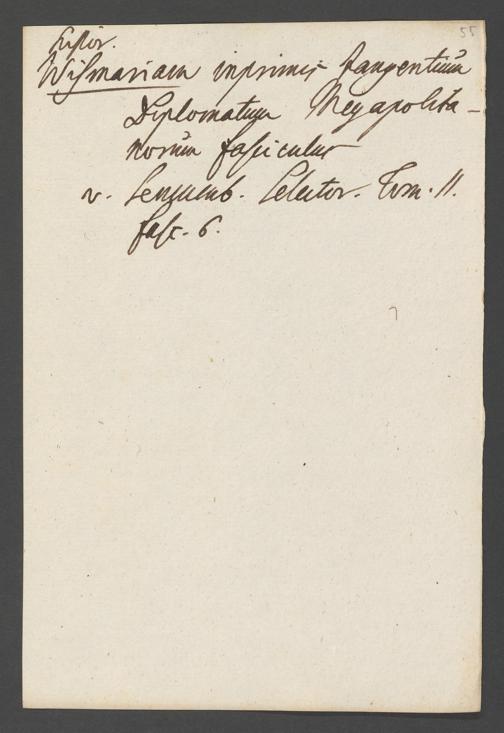 55
Histor.
Wismariam inprimis tangentium
Diplomatum Megapolita-
norum fasiculus
v. Senkenb. Selector. Tom. II.
fasc. 6.